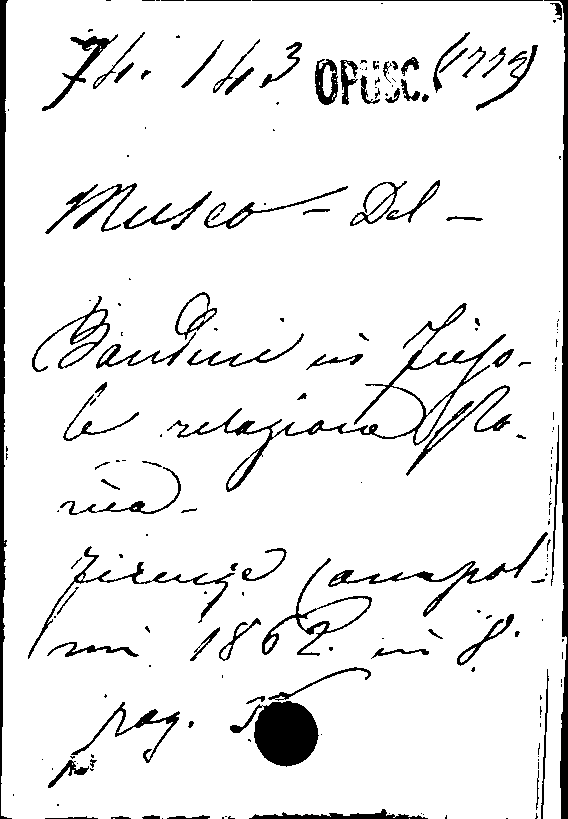 74. 143 OPUSC. (1773)
Museo - Del -
Bandini in Fieso-
le relazione sto-
rica -
Firenze Campol-
mi 1862. in 8.
pag.